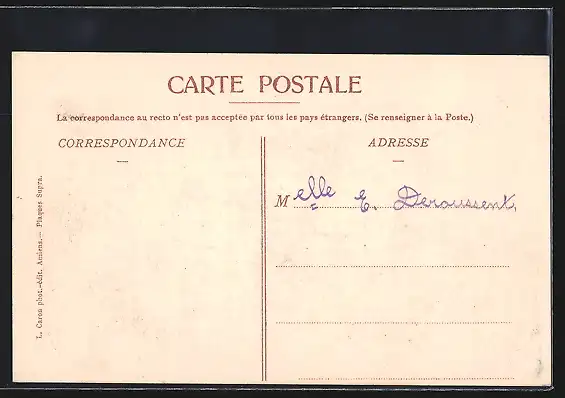 CARTE POSTALE
La correspondance au recto n'est pas acceptée par tous les pays étrangers. (Se renseigner à la Poste.)
CORRESPONDANCE
ADRESSE
Melle E. Deroussent.
L. Caron phot.-édit. Amiens.— Plaques Supra.